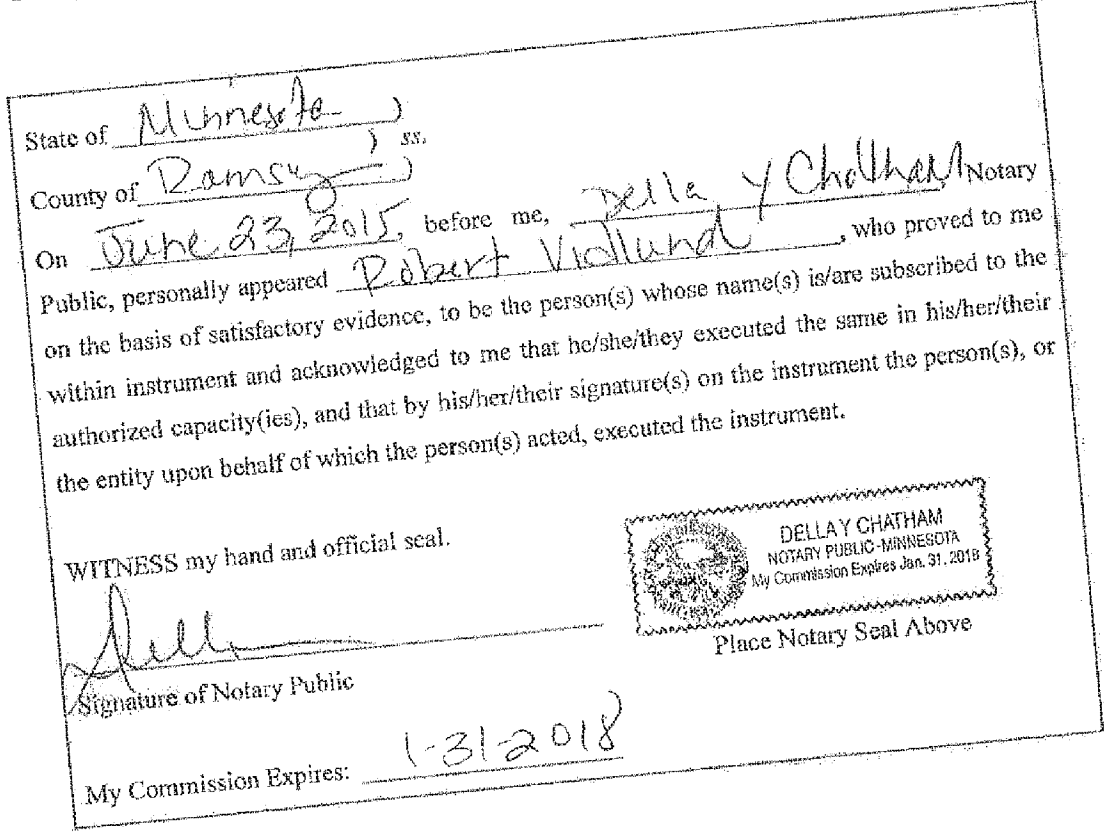 State of Minnesota )
) ss.
County of Ramsey )
On June 23, 2015, before me, Della Y Chatham, Notary
Public, personally appeared Robert Vidlund, who proved to me
on the basis of satisfactory evidence, to be the person(s) whose name(s) is/are subscribed to the
within instrument and acknowledged to me that he/she/they executed the same in his/her/their
authorized capacity(ies), and that by his/her/their signature(s) on the instrument the person(s), or
the entity upon behalf of which the person(s) acted, executed the instrument.
WITNESS my hand and official seal.
DELLA Y CHATHAM
NOTARY PUBLIC-MINNESOTA
My Commission Expires Jan. 31, 2018
Place Notary Seal Above
Signature of Notary Public
My Commission Expires: 1-31-2018